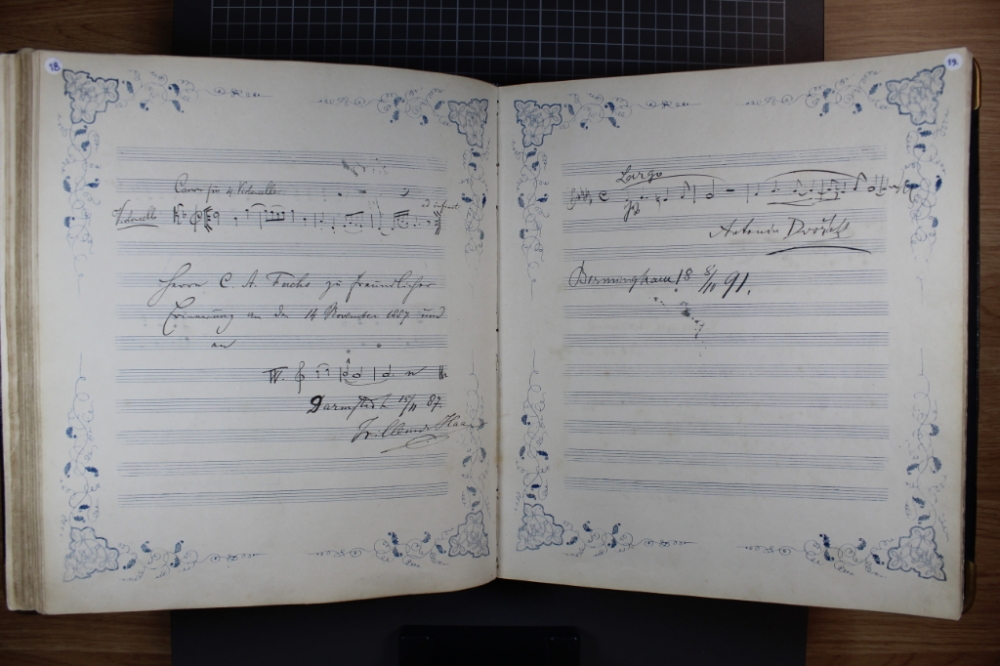 18.
Canon für 4 Violoncelle.
Violoncello
Herrn C. A. Fuchs zu freundlicher
Erinnerung an den 14 November 1887 und
an
IV.
Darmstadt 15/11 87.
19.
Largo
Antonín Dvořák
Birmingham 18 8/10 91.